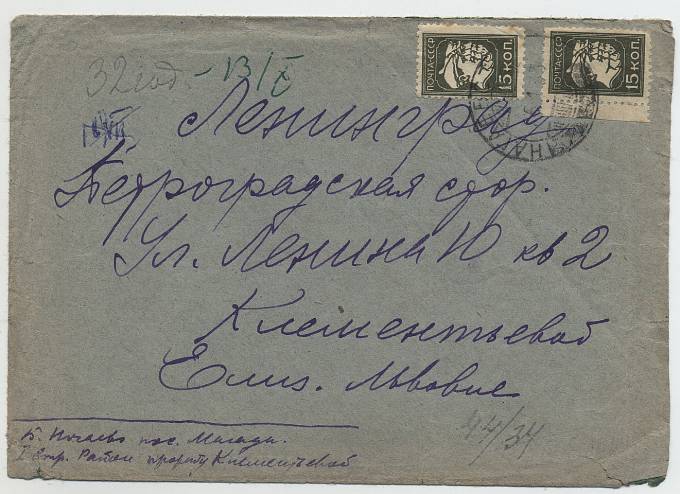 ПОЧТА·СССР 15 КОП.
ПОЧТА·СССР 15 КОП.
32 год. - 13/X
Ленинград
Петроградская стор.
Ул. Ленина 10 кв 2
Клементьевой
Елиз. Львовне
44/34
б. Ногаево пос. Магадан
Район Клементьевой